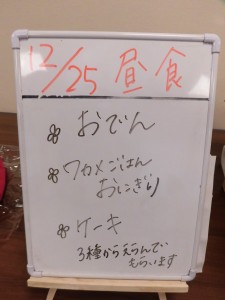 12/25 昼食
おでん
ワカメごはん
おにぎり
ケーキ
3種からえらんで
もらいます